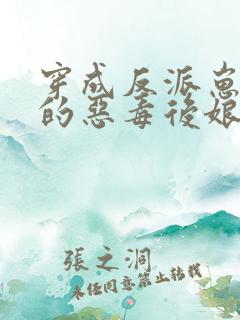 穿成反派崽
的惡毒後娘
張之洞
未经同意禁止转载